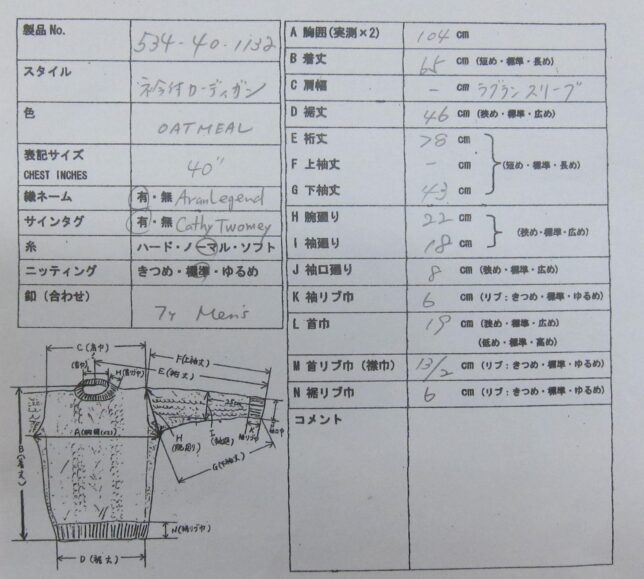 製品No. 534-40-1132
スタイル 衿付カーディガン
色 OATMEAL
表記サイズ
CHEST INCHES 40"
織ネーム 有・無 AranLegend
サインタグ 有・無 Cathy Twomey
糸 ハード・ノーマル・ソフト
ニッティング きつめ・標準・ゆるめ
釦(合わせ) 7ケ Men's
A 胸囲(実測×2) 104 cm
B 着丈 65 cm (短め・標準・長め)
C 肩幅 - cm ラグランスリーブ
D 裾丈 46 cm (狭め・標準・広め)
E 裄丈 78 cm
F 上袖丈 - cm (短め・標準・長め)
G 下袖丈 43 cm
H 腕廻り 22 cm
(狭め・標準・広め)
I 袖廻り 18 cm
J 袖口廻り 8 cm (狭め・標準・広め)
K 袖リブ巾 6 cm (リブ:きつめ・標準・ゆるめ)
L 首巾 19 cm (狭め・標準・広め)
(低め・標準・高め)
M 首リブ巾(襟巾) 13/2 cm (リブ:きつめ・標準・ゆるめ)
N 裾リブ巾 6 cm (リブ:きつめ・標準・ゆるめ)
コメント
C(肩巾)
F(上袖丈)
E(裄丈)
B(着丈)
H
(腕廻り)
G(下袖丈)
N(裾リブ巾)
D(裾丈)